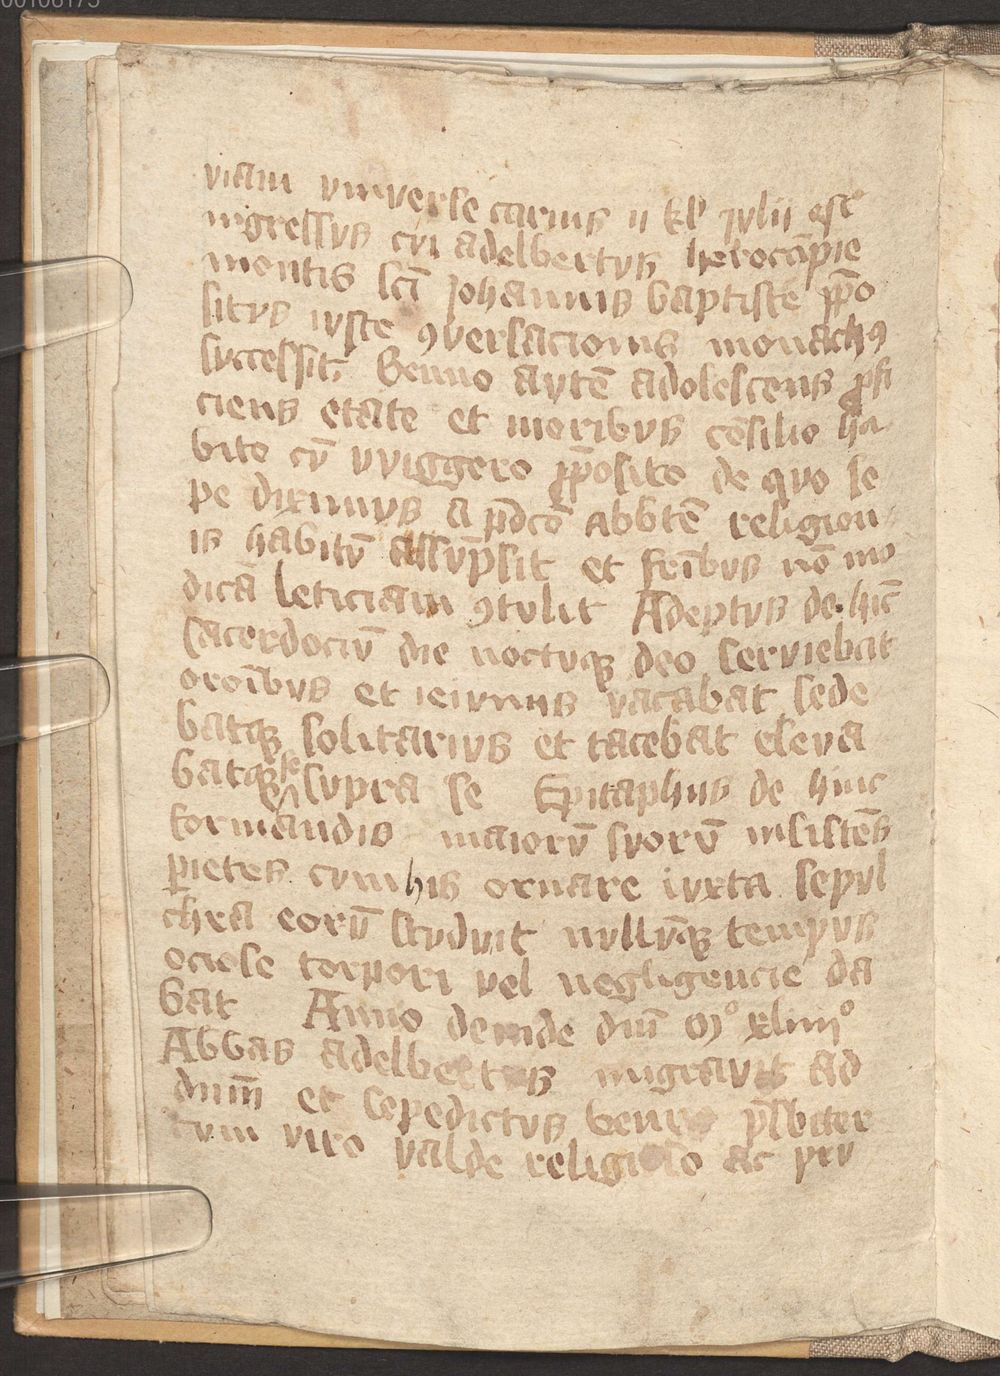 00106175
viam vniverse carnis ii kl' Jvlii est
ingressvs cvi adelbertvs herocāpie
montis scī Johannis baptiste ꝓpo
sitvs ivste ꝯversacionis monachꝰ
svccessit, Benno avtē adolescens ꝓfi
ciens etate et moribvs cōsilio ha
bito cv̄ vviggero p̄posito de qvo se
pe diximvs a p̄dcō abbtē religion
is habitv̄ assvp̄sit et fr̄ibvs nō mo
dicā leticiam ꝯtvlit Adeptvs de hīc
sacerdociv̄ die noctvqꝫ deo serviebat
orōnibvs et ieivniis vacabat sede
batqꝫ solitarivs et tacebat eleva
batqꝫ se svpra se Epitaphiis de hinc
formandis maiorv̄ svorv̄ insistēs
parietes cvm his ornare ivxta sepvl
chra eorv̄ stvdvit nvllv̄qꝫ tempvs
ociose torpori vel negligencie da
bat Anno deinde dnī Mº xliiiiº
Abbas adelbertvs migravit ad
dnm̄ et sepedictvs benno p̄sbiter
cvm viro valde religioso ac prv